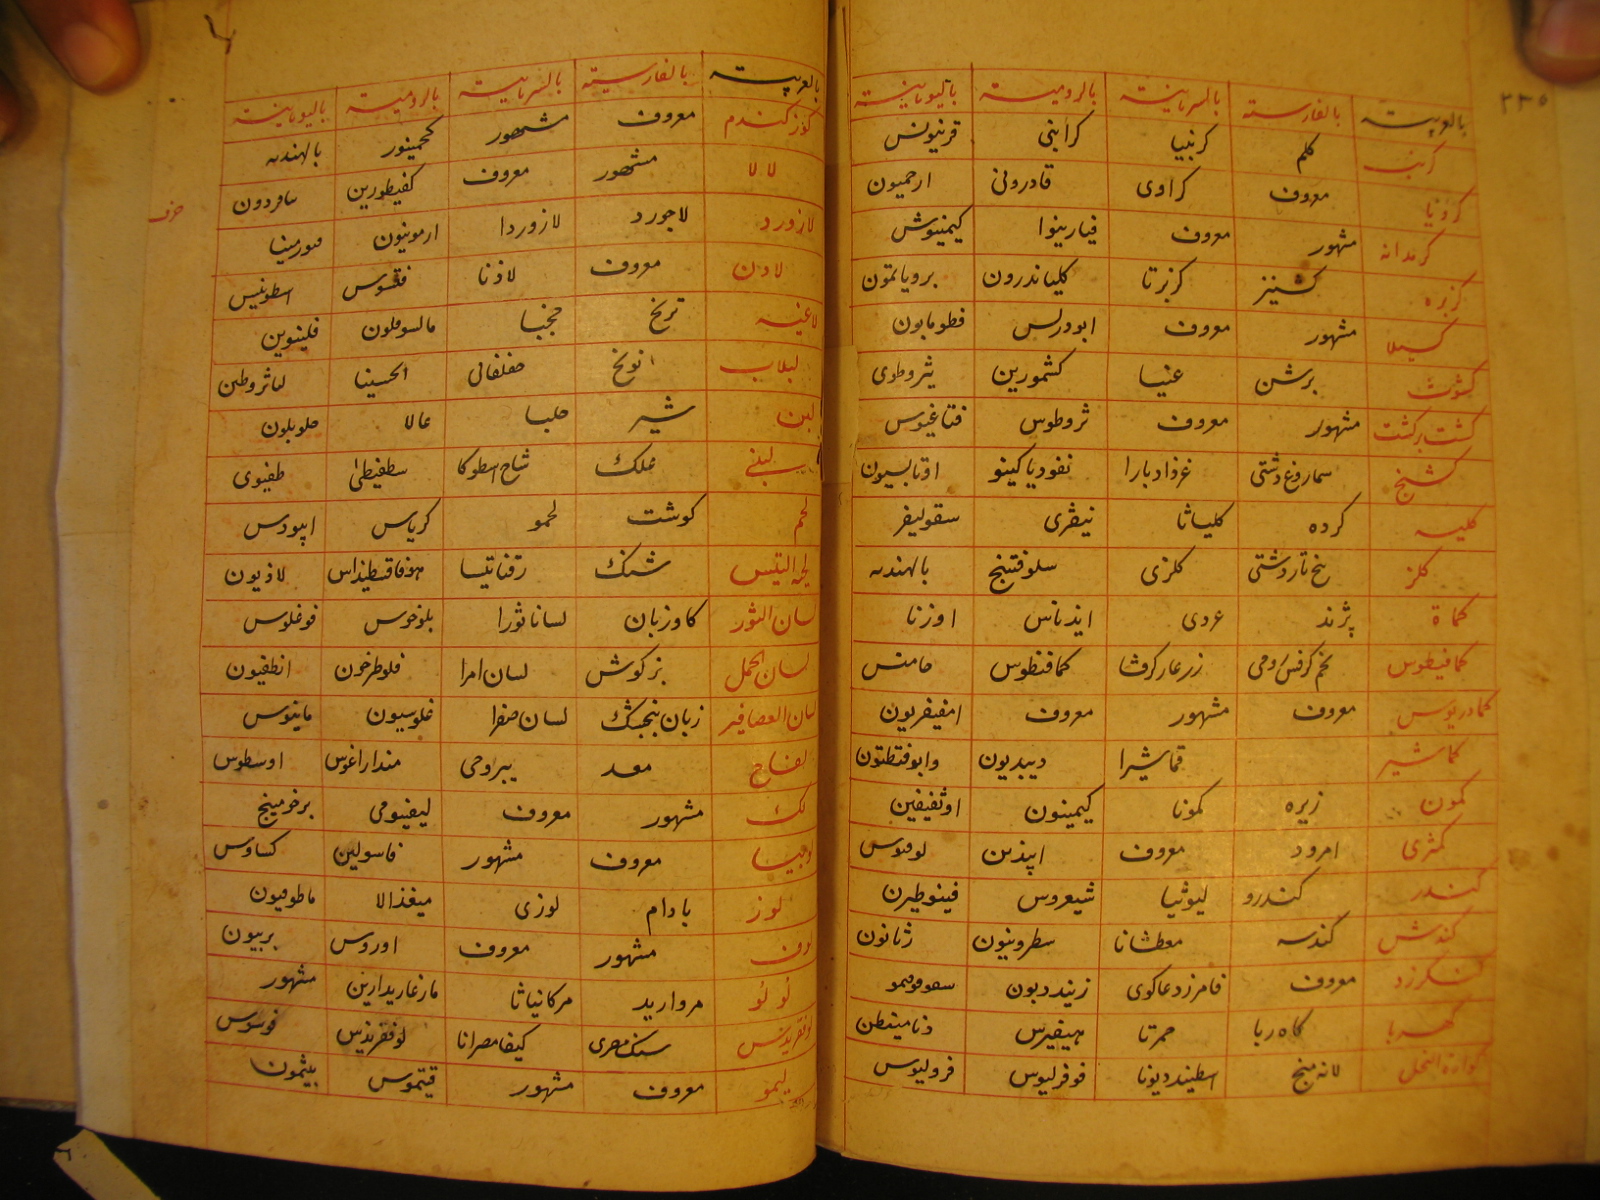 ٢٣٥
بالعربیته بالفارسیته بالسریانیته بالرومیته بالیونانیته
کرنب کلم کرنبیا کرابنی قرنیونس
کرویا معروف کراوی قادرونی ارحمیون
کرمدانه مشهور معروف قیارینوا کیمنیوش
کزبره کشنیز کزبرتا کلیاندرون برویالمتون
کسیلا مشهور معروف ابودرلس
کشوث برشن عنیا کشمورین یثروطوی
کشت برکشت مشهور معروف ثروطوس فتاغیوس
کشنج سماروغ دشتی غرادبارا نفودیاکینو اقنابسیون
کلیه کرده کلیاثا نیقری سقولیفر
کلز کلزی سلوقتینج بالهندیه
کماة پژند عردی ایدناس اوزنا
کمافیطوس تخم کرفس رومی کمافنطوس حامنس
کمادریوس معروف مشهور معروف امفیفریون
کماشیر قماشیرا دیبدیون وابوفتطتون
کمون زیره کمونا کیمینون اوثفیفین
کمثری امرود معروف اپیذین لوفیوس
کندر کندرو لیوثیا شیعروس فینوطیرن
کندش کندسه معطشانا سطرونیون ژنانون
کنکرزد معروف قامرزدعاکوی زنیددبون
کهربا کاه ربا حمرتا هیفیرس
کوارة النحل لانه منج اسطینددیونا فوفرلیوس فرولیوس
بالعربیته بالفارسیته بالسریانیته بالرومیته بالیونانیته
کوزکندم معروف مشهور کحمینور بالهندیه
لالا مشهور معروف کفیطورین سافردون
لازورد لاجورد لازوردا ارمونیون
حرف
لادن معروف لاذنا فقسوس اسطونیس
لاغیه ترنخ حجنبا فلینوین
لبلاب انونخ حفلفانی الحسینا
لبن شیر حلبا عالا حلوبلون
لبنی سطفیطی طفیوی
لحم کوشت لحمو کریاس اپیودس
لحیة التیس شنک رقناتیسا هوفاقسطیذاس لاذیون
لسان الثور کاوزبان لساناثورا بلوخوس فوغلوس
لسان الحمل بزکوش لسان امرا فلوطرخون انطفیون
لسان العصافیر زبان بنجشک لسان صفرا فلوسیون ماینوس
لفاح معد یبروحی منداراغوس اوسطوس
لک مشهور معروف لیفینومی برخومینج
لوبیا معروف مشهور فاسولین کساوس
لوز بادام لوزی میغذالا ماطومیون
لوف مشهور معروف اوروس بربیون
لولو مروارید مرکانیاثا مارغاریدارین مشهور
لوفقریذس سنک مصری کیفامصرانا لوفقریذیس فوسوس
لیمو معروف مشهور قیتموس بیثمون